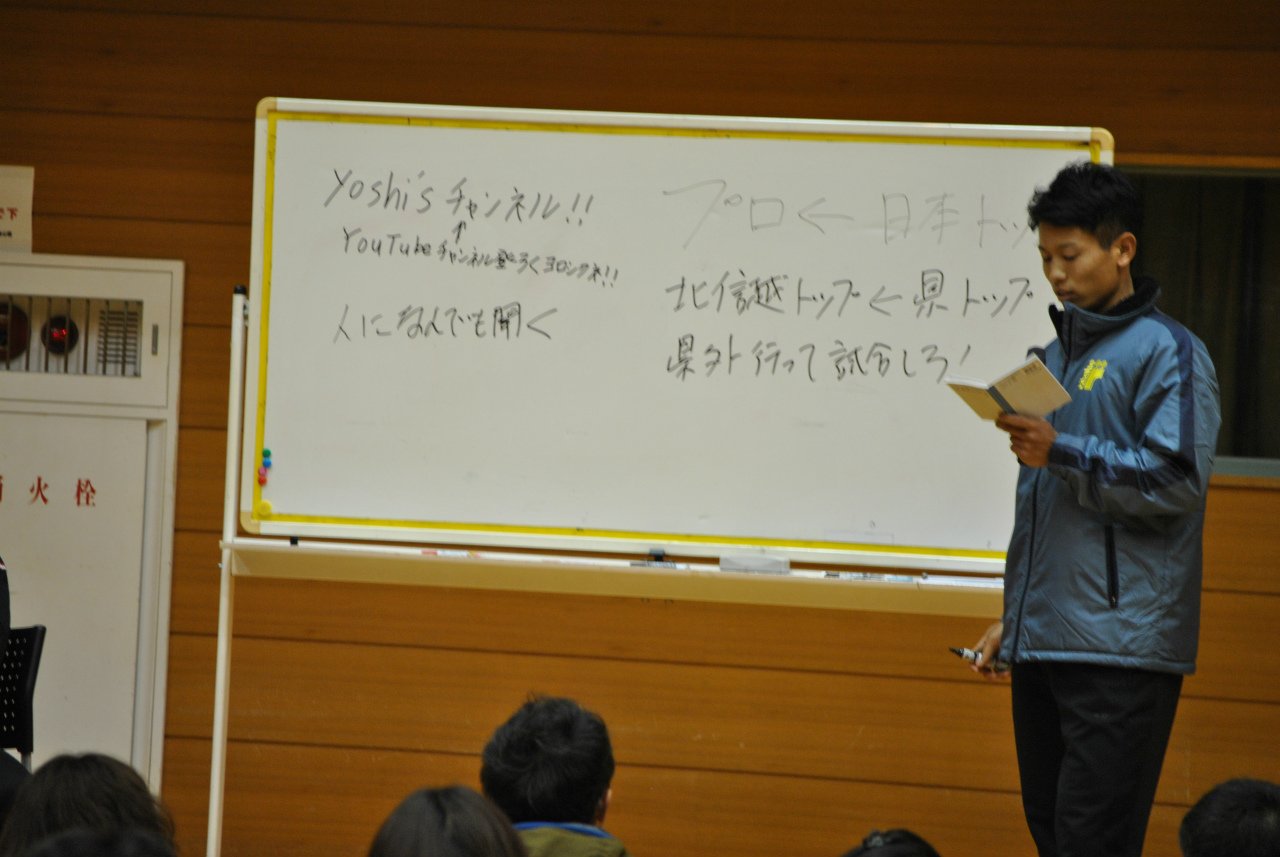 Yoshi's チャンネル!!
↑
YouTube チャンネル登ろくヨロシクネ!!
人になんでも聞く
プロ← 日本トッ
北信越トップ←県トップ
県外行って試合しろ!
火栓
下